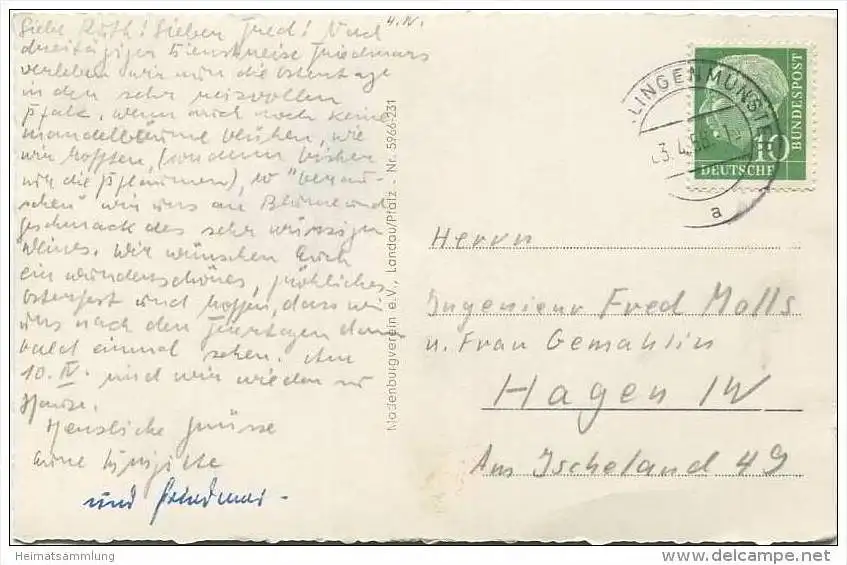 4.IV.
Liebe Ruth! Lieber Fred! Nach
dreitägiger Dienstreise Friedmars
verleben wir nun die Ostertage
in den sehr reizvollen
Pfalz, wenn auch noch keine
Mandelbäume blühen, wie
wir hofften, (sondern bisher
nur die Pflaumen), so "berau-
schen" wir uns an Blume und
Geschmack des sehr würzigen
Weines. Wir wünschen Euch
ein wunderschönes, fröhliches
Osterfest und hoffen, dass wir
uns nach den Feiertagen dann
bald einmal sehen. Am
10. IV. sind wir wieder zu
Hause.
Herzliche Grüsse
Eure Brigitte
und Friedmar -
Madenburgverein e.V., Landau/Pfalz - Nr. 5966-231
KLINGENMÜNSTER
3.4.58
a
10
DEUTSCHE
BUNDESPOST
Herrn
Ingenieur Fred Molls
u. Frau Gemahlin
Hagen i/W
Am Ischeland 49
Heimatsammlung
www.delcampe.net